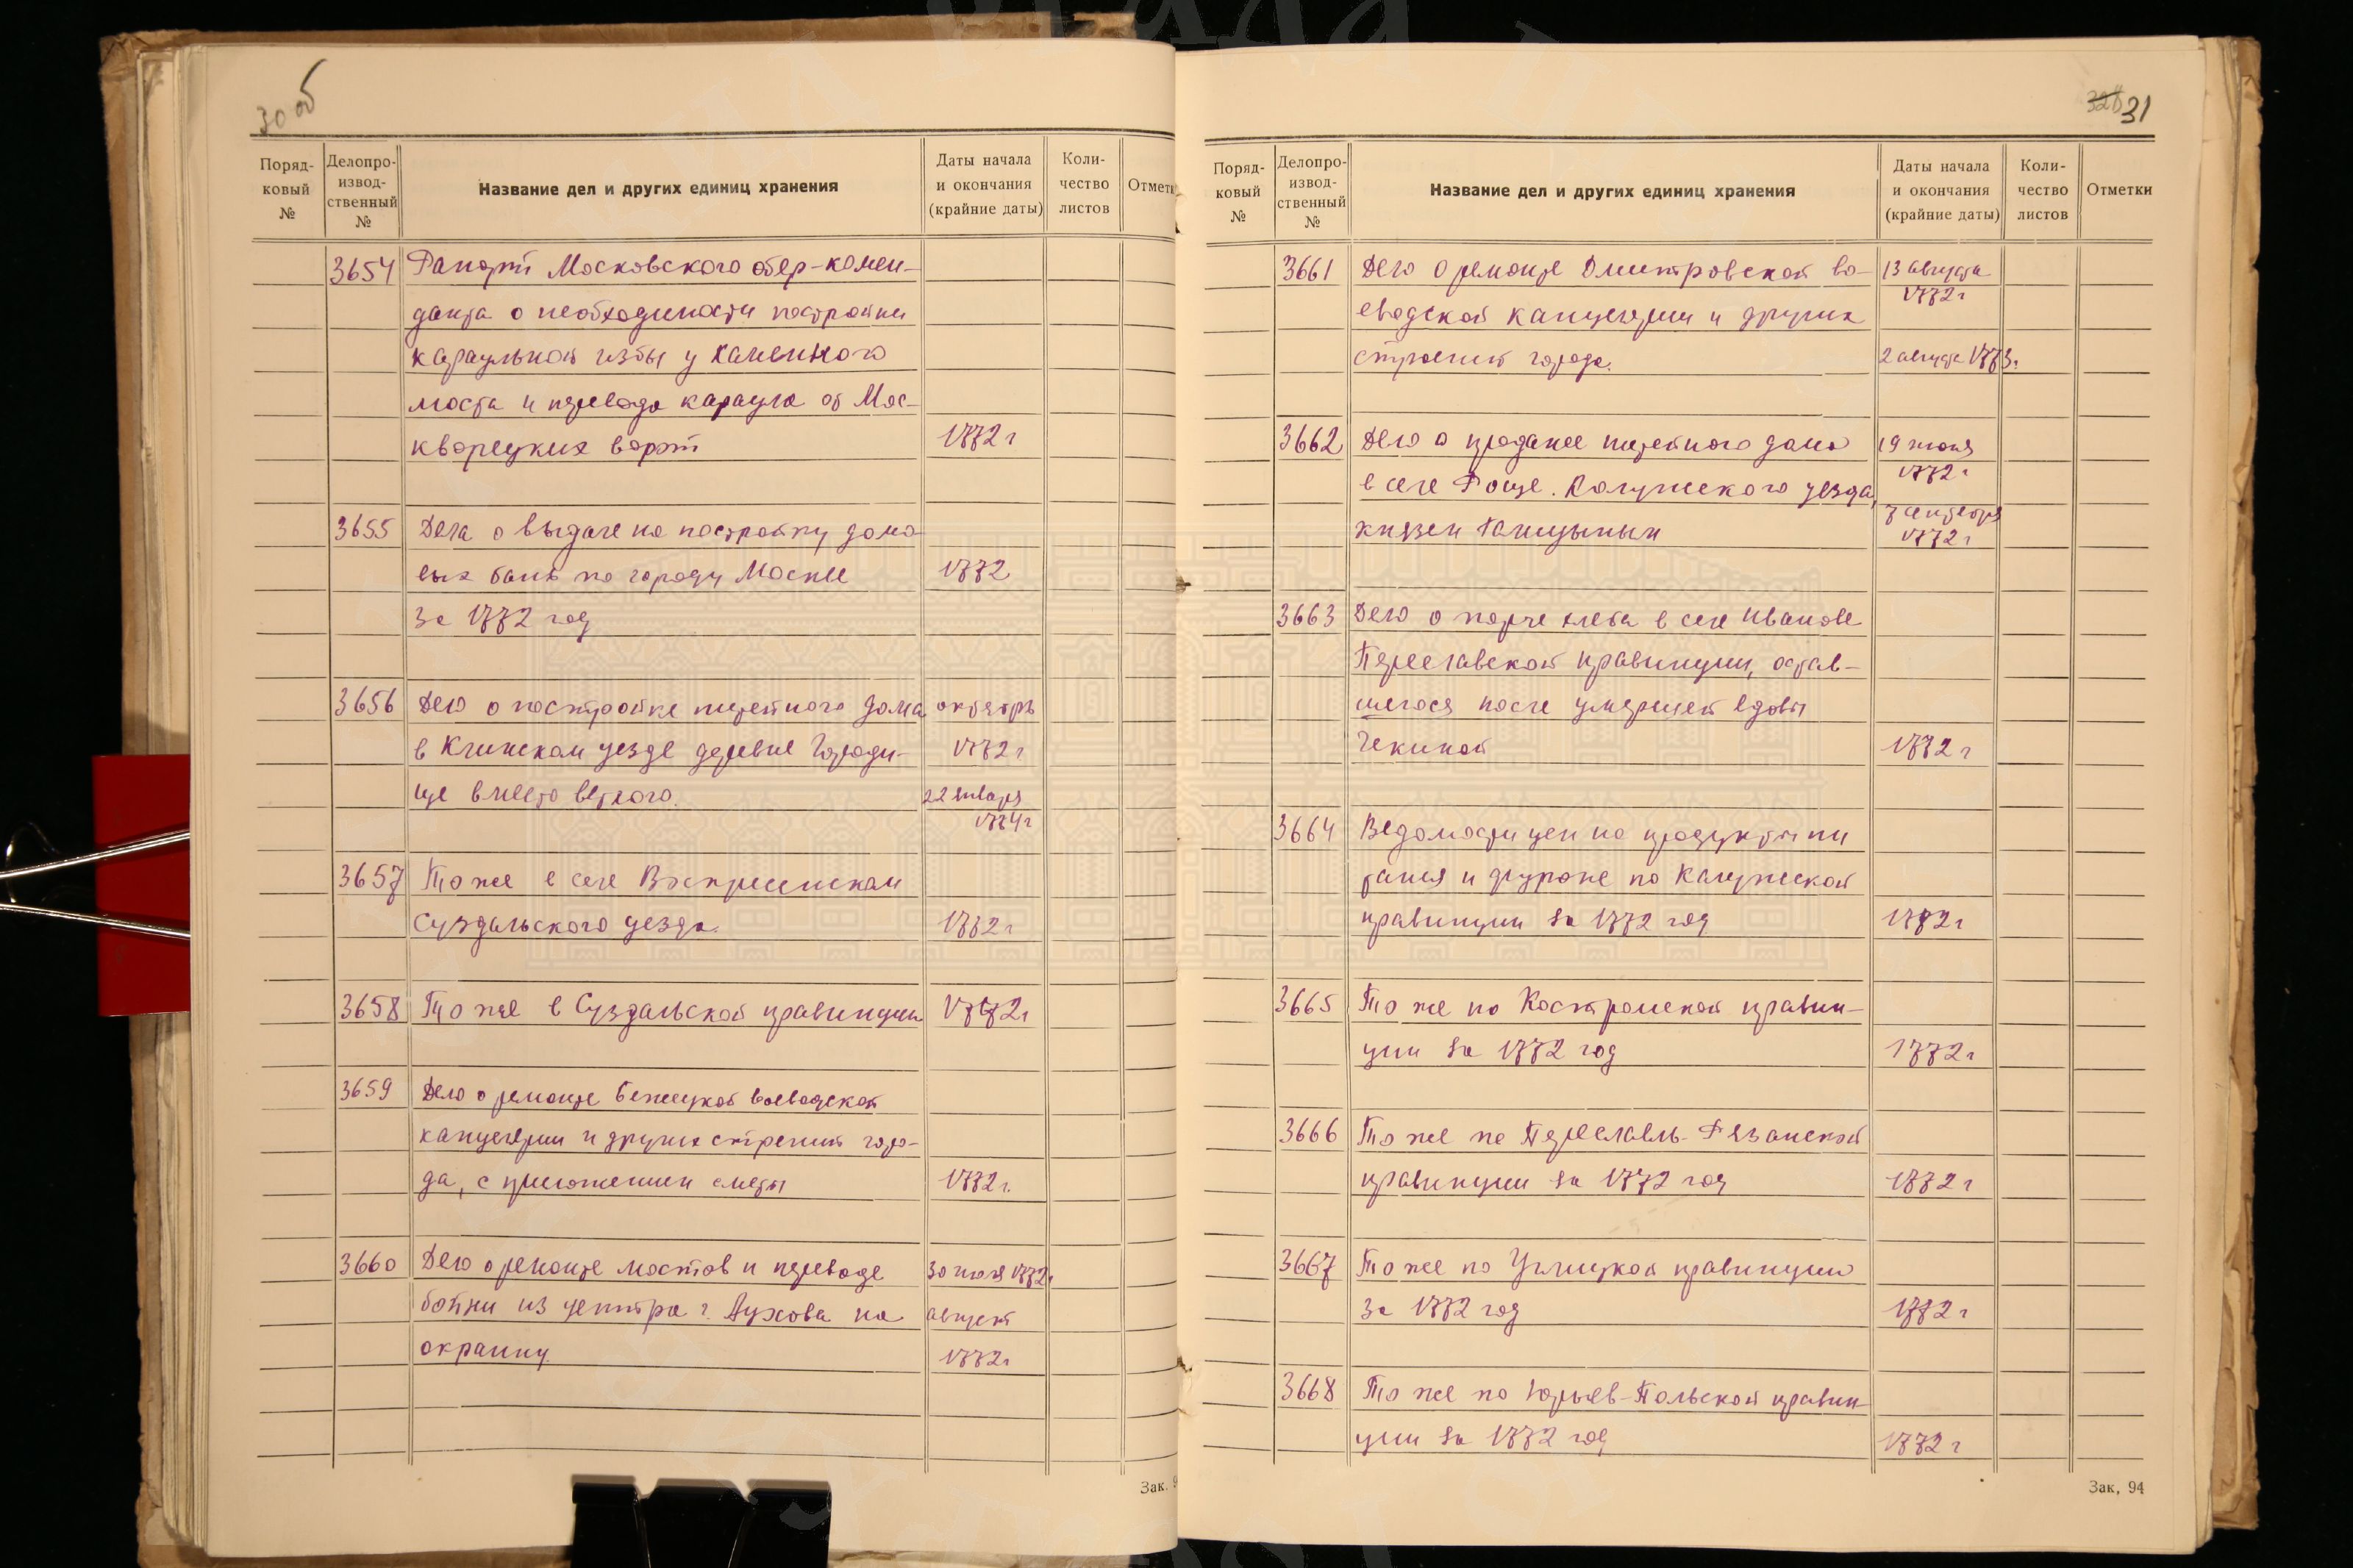 30 об
Поряд-
ковый
№
Делопро-
извод-
ственный
№
Название дел и других единиц хранения
Даты начала
и окончания
(крайние даты)
Коли-
чество
листов
Отметк
3654 Рапорт Московского обер-комен-
данта о необходимости постройки
караульной избы у Каменного
моста и перевода караула от Мос-
кворецких ворот 1772 г
3655 Дела о выдаче на постройку домо-
вых бань по городу Москве 1772
За 1772 год
3656 Дело о постройке питейного дома октябрь
в Клинском уезде деревне Городи- 1772 г
ще вместо ветхого. 22 января
1774 г
3657 То же в селе Воскресенском
Суздальского уезда. 1772 г
3658 То же в Суздальской провинции 1772 г
3659 Дело о ремонте Бежецкой воеводской
канцелярии и других строений горо-
да, с приложением сметы 1772 г.
3660 Дело о ремонте мостов и переводе 30 июля 1772 г
бойни из центра г. Лухова на август
окраину. 1772 г
Зак. 9
328 31
Поряд-
ковый
№
Делопро-
извод-
ственный
№
Название дел и других единиц хранения
Даты начала
и окончания
(крайние даты)
Коли-
чество
листов
Отметки
3661 Дело о ремонте Дмитровской во- 13 августа
1772 г
еводской канцелярии и других
строений города. 2 августа 1773 г.
3662 Дело о продаже питейного дома 19 июня
1772 г
в селе Роще. Калужского уезда,
князем Голицыным 7 сентября
1772 г
3663 Дело о порче хлеба в селе Иванове
Переславской провинции, остав-
шегося после умершей вдовы
Чекиной 1772 г
3664 Ведомости цен на продукты пи
тания и фураже по Калужской
провинции за 1772 год 1772 г
3665 То же по Костромской провин-
ции за 1772 год 1772 г
3666 То же по Переславль-Рязанской
провинции за 1772 год 1772 г
3667 То же по Углицкой провинции
За 1772 год 1772 г
3668 То же по Юрьев-Польской провин-
ции за 1772 год 1772 г
Зак, 94